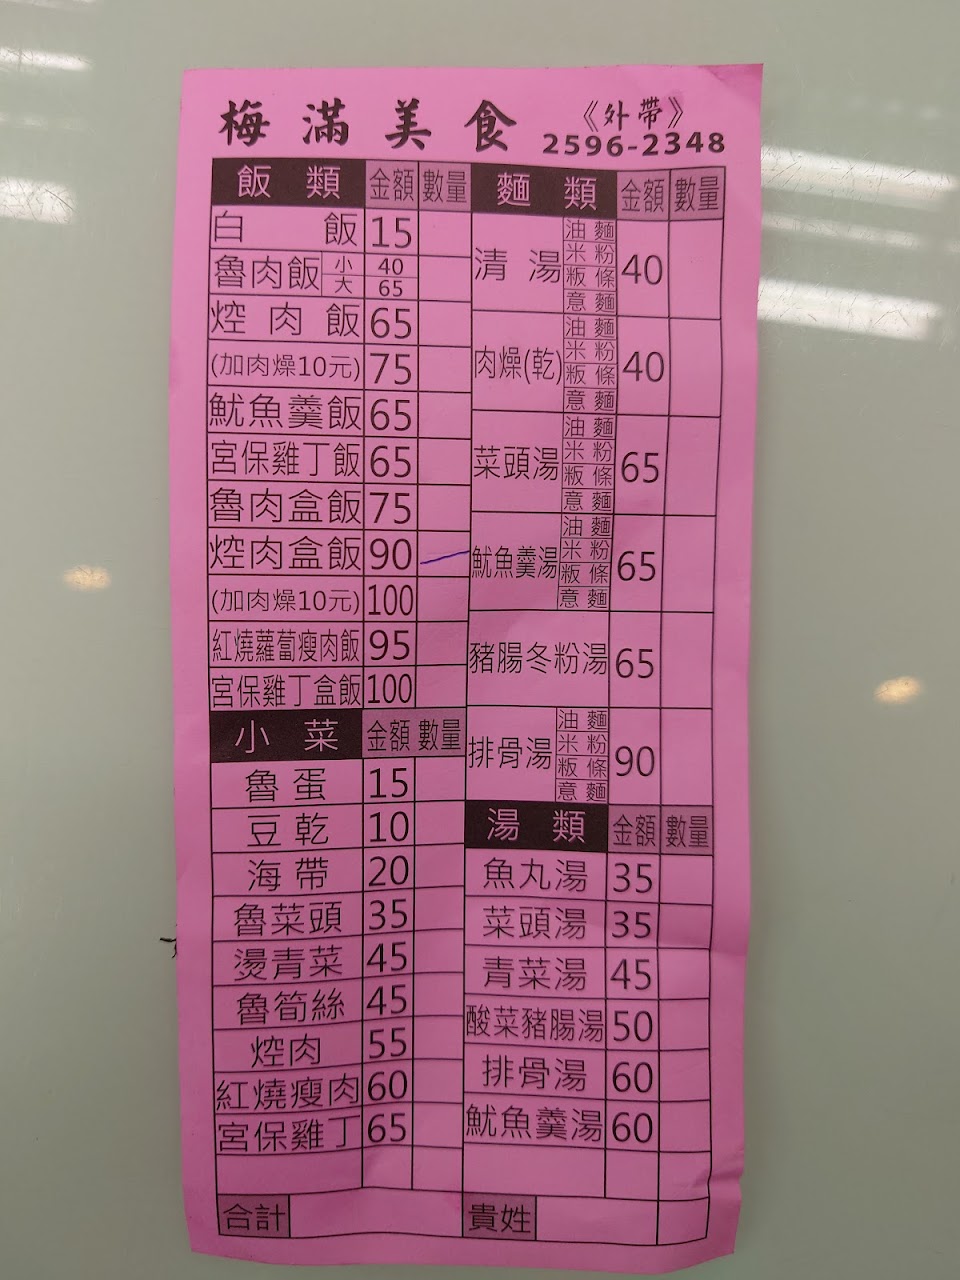 梅滿美食 《外帶》
2596-2348
飯類 金額 數量
白飯 15
魯肉飯 小 40
大 65
焢肉飯 65
(加肉燥10元) 75
魷魚羹飯 65
宮保雞丁飯 65
魯肉盒飯 75
焢肉盒飯 90
(加肉燥10元) 100
紅燒蘿蔔瘦肉飯 95
宮保雞丁盒飯 100
小菜 金額 數量
魯蛋 15
豆乾 10
海帶 20
魯菜頭 35
燙青菜 45
魯筍絲 45
焢肉 55
紅燒瘦肉 60
宮保雞丁 65
合計
麵類 金額 數量
清湯 油麵 米粉 粄條 意麵 40
肉燥(乾) 油麵 米粉 粄條 意麵 40
菜頭湯 油麵 米粉 粄條 意麵 65
魷魚羹湯 油麵 米粉 粄條 意麵 65
豬腸冬粉湯 65
排骨湯 油麵 米粉 粄條 意麵 90
湯類 金額 數量
魚丸湯 35
菜頭湯 35
青菜湯 45
酸菜豬腸湯 50
排骨湯 60
魷魚羹湯 60
貴姓